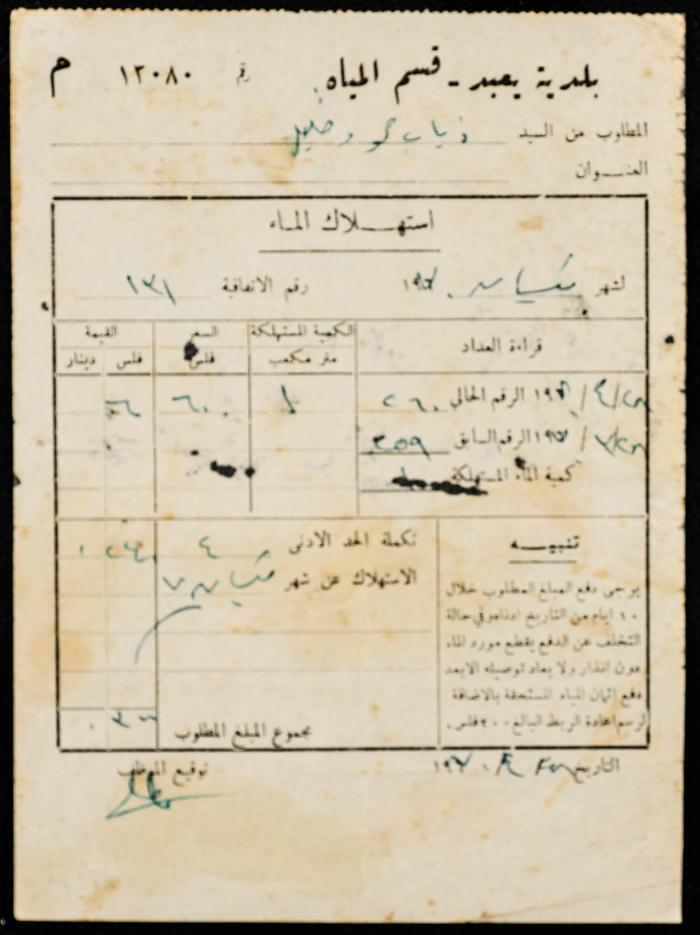 بلدية يعبد - قسم المياه. رقم ١٣٠٨٠ م
المطلوب من السيد ذياب خليل
العنــوان
استهــلاك المـاء
لشهر نيسان ١٩ رقم الاتفاقية ١٣١
قراءة العداد الكمية المستهلكة السعر القيمة
متر مكعب فلس فلس دينار
١٩ الرقم الحالي ٢٦٠ ١ ٦٠ ٦٠
١٩٥ الرقم السابق ٢٥٩
كمية الماء المستهلكة
تنبيــه
يرجى دفع المبلغ المطلوب خلال
١٠ ايام من التاريخ ادناه وفي حالة
التخلف عن الدفع يقطع مورد الماء
دون انذار ولا يعاد توصيله الا بعد
دفع اثمان المياه المستحقة بالاضافة
لرسم اعادة الربط البالغ ٢٠٠ فلس.
تكملة الحد الادنى ٤ ٢٤٠
الاستهلاك عن شهر نيسان
مجموع المبلغ المطلوب ٣٠٠
التاريخ ١٩ توقيع الموظف